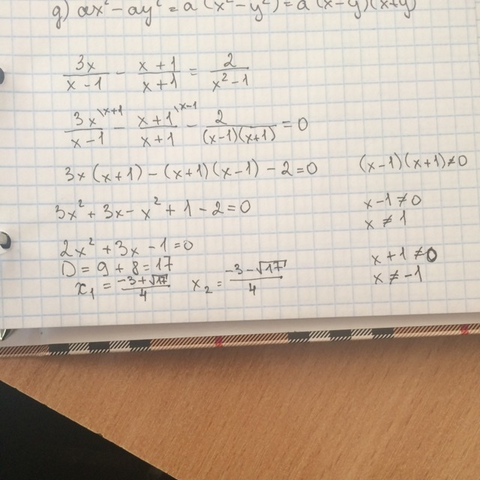 g) ax² - ay² = a(x² - y²) = a(x-y)(x+y)
3x/(x-1) - (x+1)/(x+1) = 2/(x²-1)
3x\x+1/(x-1) - x+1\x-1/(x+1) - 2/((x-1)(x+1)) = 0
3x(x+1) - (x+1)(x-1) - 2 = 0 (x-1)(x+1)≠0
3x² + 3x - x² + 1 - 2 = 0 x-1≠0
x≠1
2x² + 3x - 1 = 0
D = 9 + 8 = 17 x+1≠0
x₁ = (-3+√17)/4 x₂ = (-3-√17)/4 x≠-1